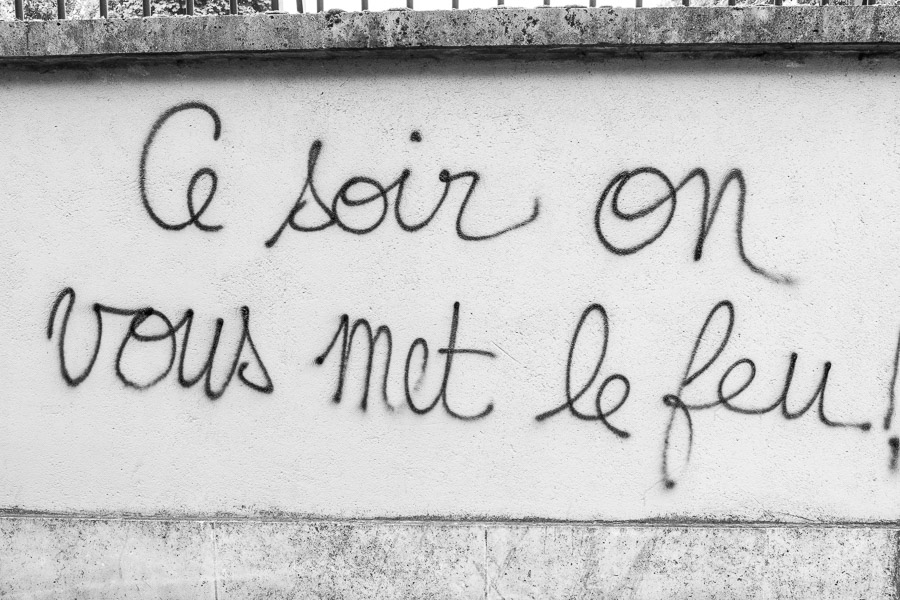 Ce soir on
vous met le feu!